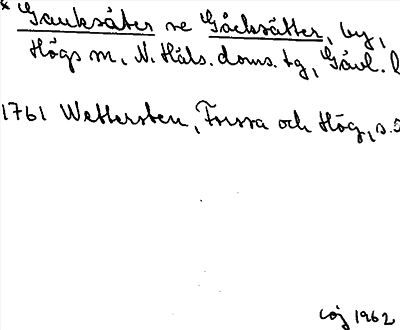 * Gauksäter se Gåcksätter, by,
Högs sn, N. Häls. doms. tg, Gävl. l
1761 Wettersten, Forssa och Hög, s. 5
COJ 1962